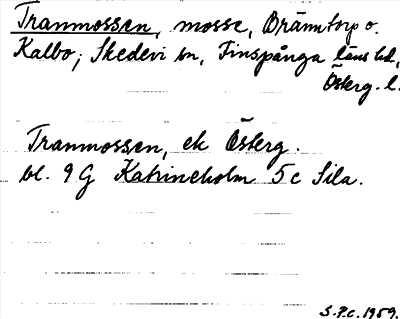 Tranmossen, mosse, Brämtorp o.
Kalbo; Skedevi sn, Finspånga läns hd,
Österg. l.
Tranmossen, ek Österg.
bl. 9 G Katrineholm 5 c Sila.
S.P.C. 1959.